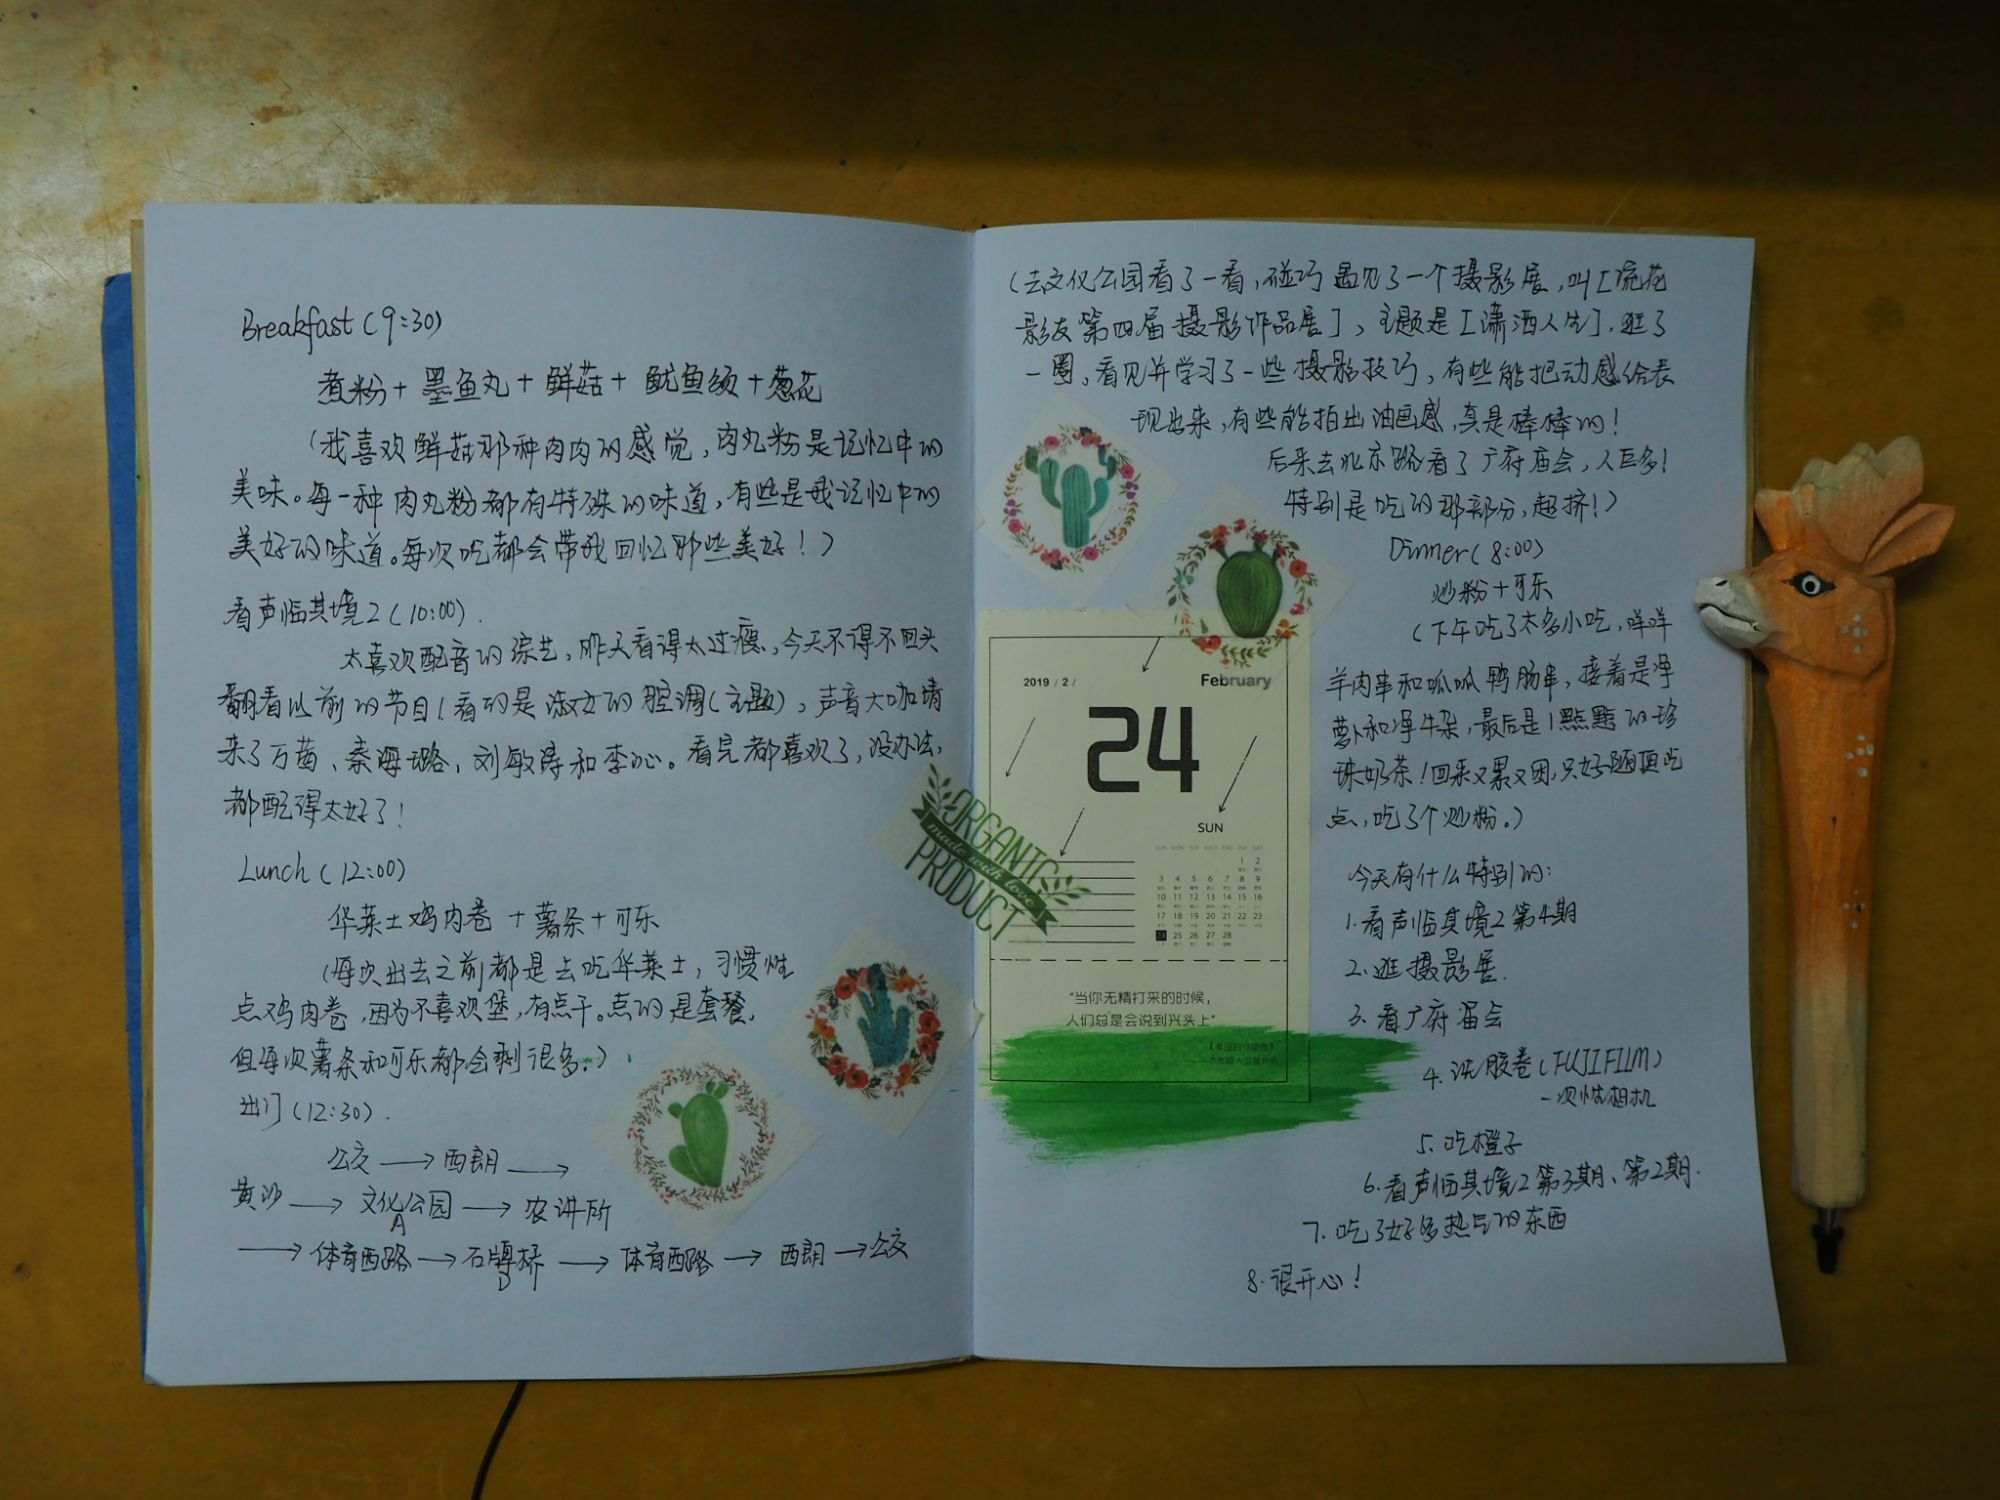 Breakfast (9:30)
煮粉+墨鱼丸+鲜菇+鱿鱼须+葱花
(我喜欢鲜菇那种肉肉的感觉,肉丸粉是记忆中的
美味。每一种肉丸粉都有特殊的味道,有些是我记忆中的
美好的味道。每次吃都会带我回忆那些美好!)
看声临其境2(10:00).
太喜欢配音的综艺,昨天看得太过瘾,今天不得不回头
翻看以前的节目(看的是淑女的腔调(主题),声音大咖请
来了万茜、秦海璐,刘敏涛和李沁。看完都喜欢了,没办法,
都配得太好了!
Lunch (12:00)
华莱士鸡肉卷+薯条+可乐
(每次出去之前都是去吃华莱士,习惯性
点鸡肉卷,因为不喜欢堡,有点干。点的是套餐,
但每次薯条和可乐都会剩很多.)
出门(12:30).
公交→西朗→
黄沙→文化公园→农讲所
A
→体育西路→石牌桥→体育西路→西朗→公交
D
(去文化公园看了一看,碰巧遇见了一个摄影展,叫[流花
影友第四届摄影作品展],主题是[潇洒人生],逛了
一圈,看见并学习了一些摄影技巧,有些能把动感给表
现出来,有些能拍出油画感,真是棒棒的!
后来去北京路看了广府庙会,人巨多!
特别是吃的那部分,超挤!)
Dinner (8:00)
炒粉+可乐
(下午吃了太多小吃,咩咩
羊肉串和呱呱鸭肠串,接着是净
萝卜和净牛杂,最后是1點點的珍
珠奶茶!回来又累又困,只好随便吃
点,吃了个炒粉。)
今天有什么特别的:
1.看声临其境2第4期
2.逛摄影展.
3.看广府庙会
4.洗胶卷(FUJIFILM)
一次性相机
5.吃橙子
6.看声临其境2第3期、第2期.
7.吃了好多热气的东西
8.很开心!
2019 / 2 /
February
24
SUN
SUN MON TUE WED THU FRI SAT
1 2
3 4 5 6 7 8 9
10 11 12 13 14 15 16
17 18 19 20 21 22 23
24 25 26 27 28
"当你无精打采的时候,
人们总是会说到兴头上"
ORGANIC
made with love
PRODUCT